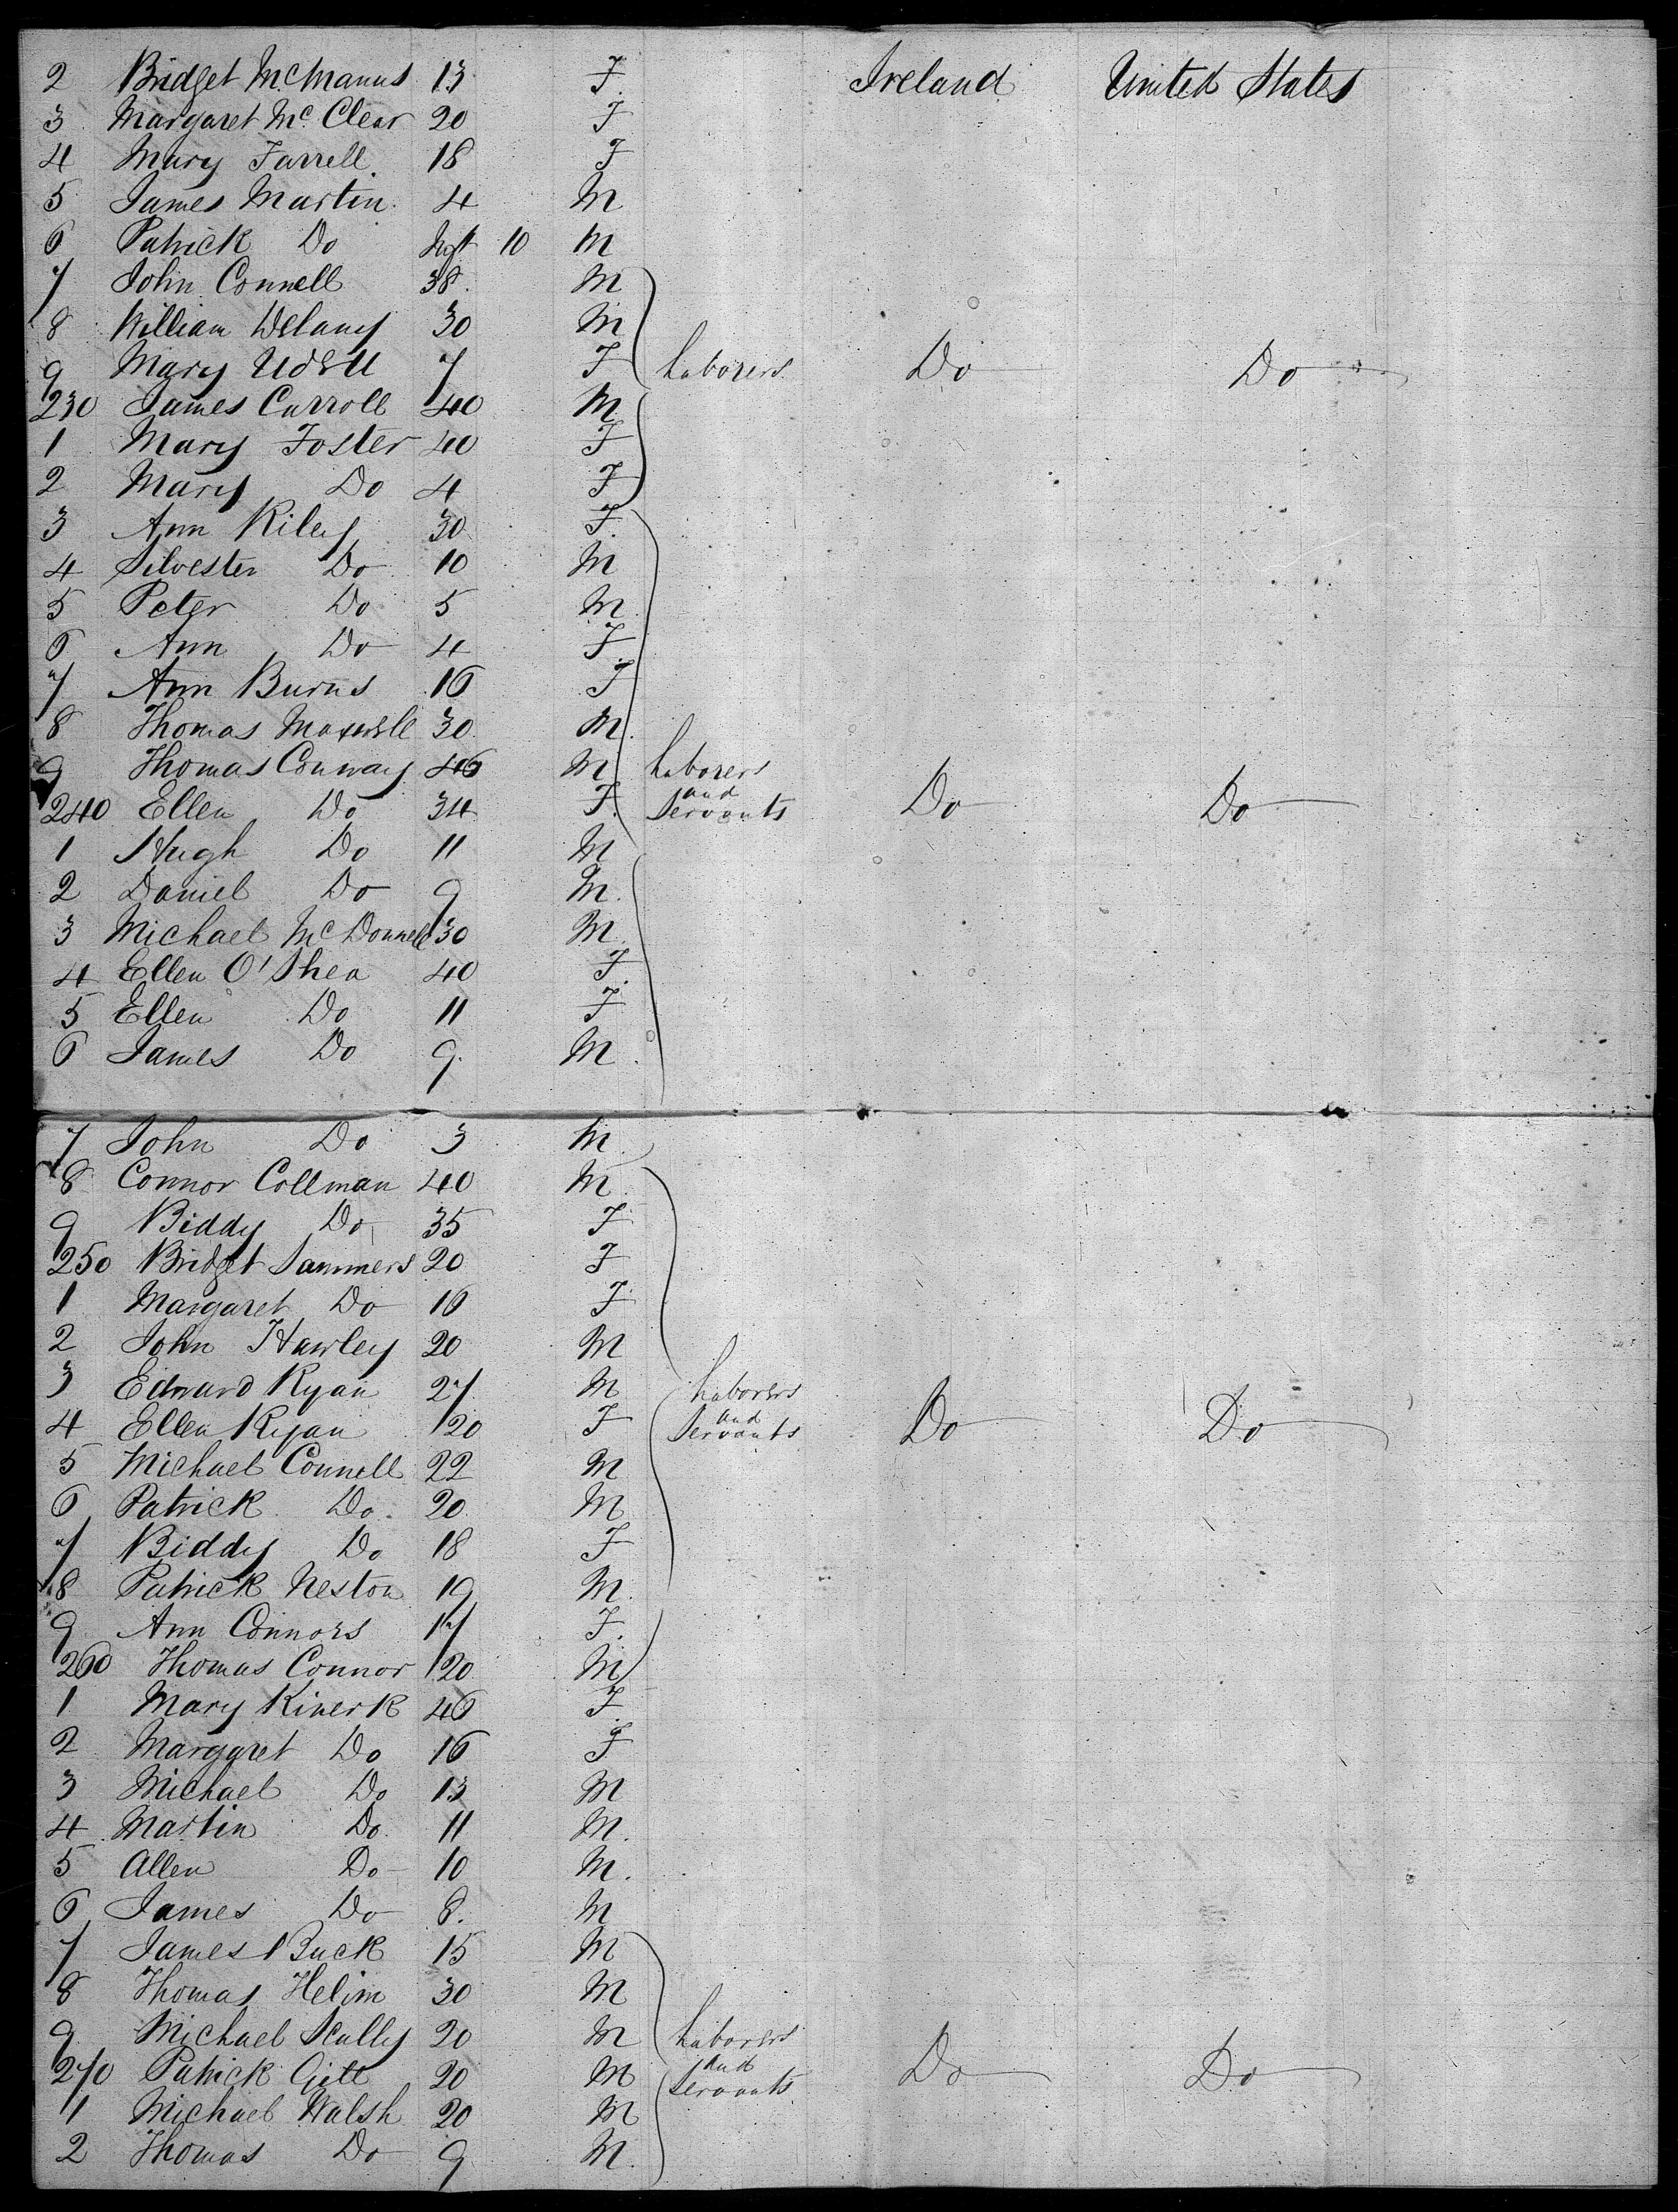 2 Bridget McManus 13 F Ireland United States
3 Margaret Mc Clear 20 F
4 Mary Farrell 18 F
5 James Martin 4 M
6 Patrick Do Inft 10 M
7 John Connell 38 M
8 William Delaney 30 M
9 Mary Udell 7 F Laborers Do Do
230 James Carroll 40 M
1 Mary Foster 40 F
2 Mary Do 4 F
3 Ann Riley 30 F
4 Silvester Do 10 M
5 Peter Do 5 M
6 Ann Do 4 F
7 Ann Burns 16 F
8 Thomas Maxwell 30 M
9 Thomas Conway 46 M Laborers
240 Ellen Do 34 F and Servants Do Do
1 Hugh Do 11 M
2 Daniel Do 9 M
3 Michael McDonnell 30 M
4 Ellen O'Shea 40 F
5 Ellen Do 11 F
6 James Do 9 M
7 John Do 3 M
8 Connor Collman 40 M
9 Biddy Do 35 F
250 Bridget Sammers 20 F
1 Margaret Do 16 F
2 John Hawley 20 M
3 Edward Ryan 27 M Laborers
4 Ellen Ryan 20 F and Servants Do Do
5 Michael Connell 22 M
6 Patrick Do 20 M
7 Biddy Do 18 F
8 Patrick Neston 19 M
9 Ann Connors 17 F
260 Thomas Connor 20 M
1 Mary Kinerk 46 F
2 Margaret Do 16 F
3 Michael Do 13 M
4 Martin Do 11 M
5 Allen Do 10 M
6 James Do 8 M
7 James Buck 15 M
8 Thomas Helim 30 M
9 Michael Scully 20 M Laborers
270 Patrick Gill 20 M and Servants Do Do
1 Michael Walsh 20 M
2 Thomas Do 9 M